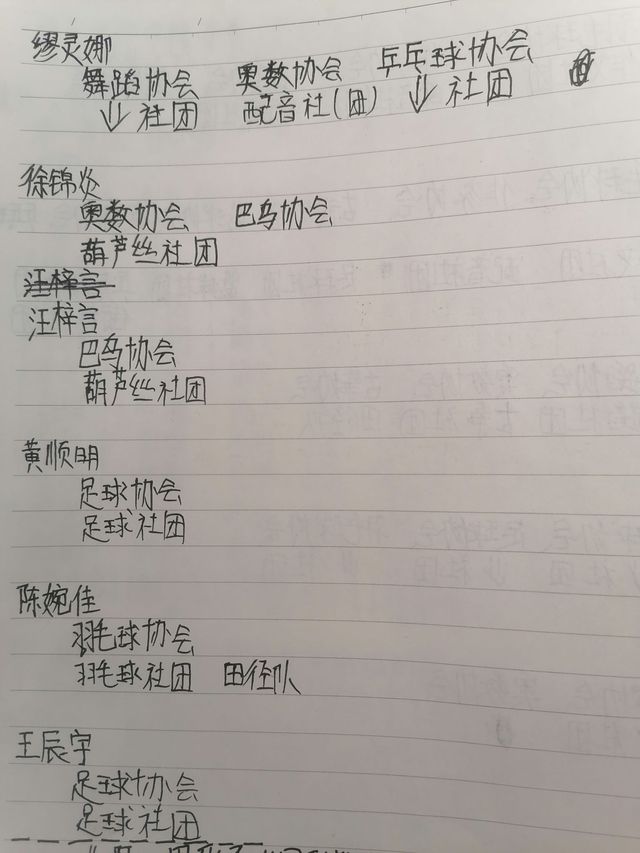 缪灵娜
舞蹈协会 奥数协会 乒乓球协会
↓社团 配音社(团) ↓社团
徐锦炎
奥数协会 巴乌协会
葫芦丝社团
汪梓言
汪梓言
巴乌协会
葫芦丝社团
黄顺明
足球协会
足球社团
陈婉佳
羽毛球协会
羽毛球社团 田径队
王辰宇
足球协会
足球社团